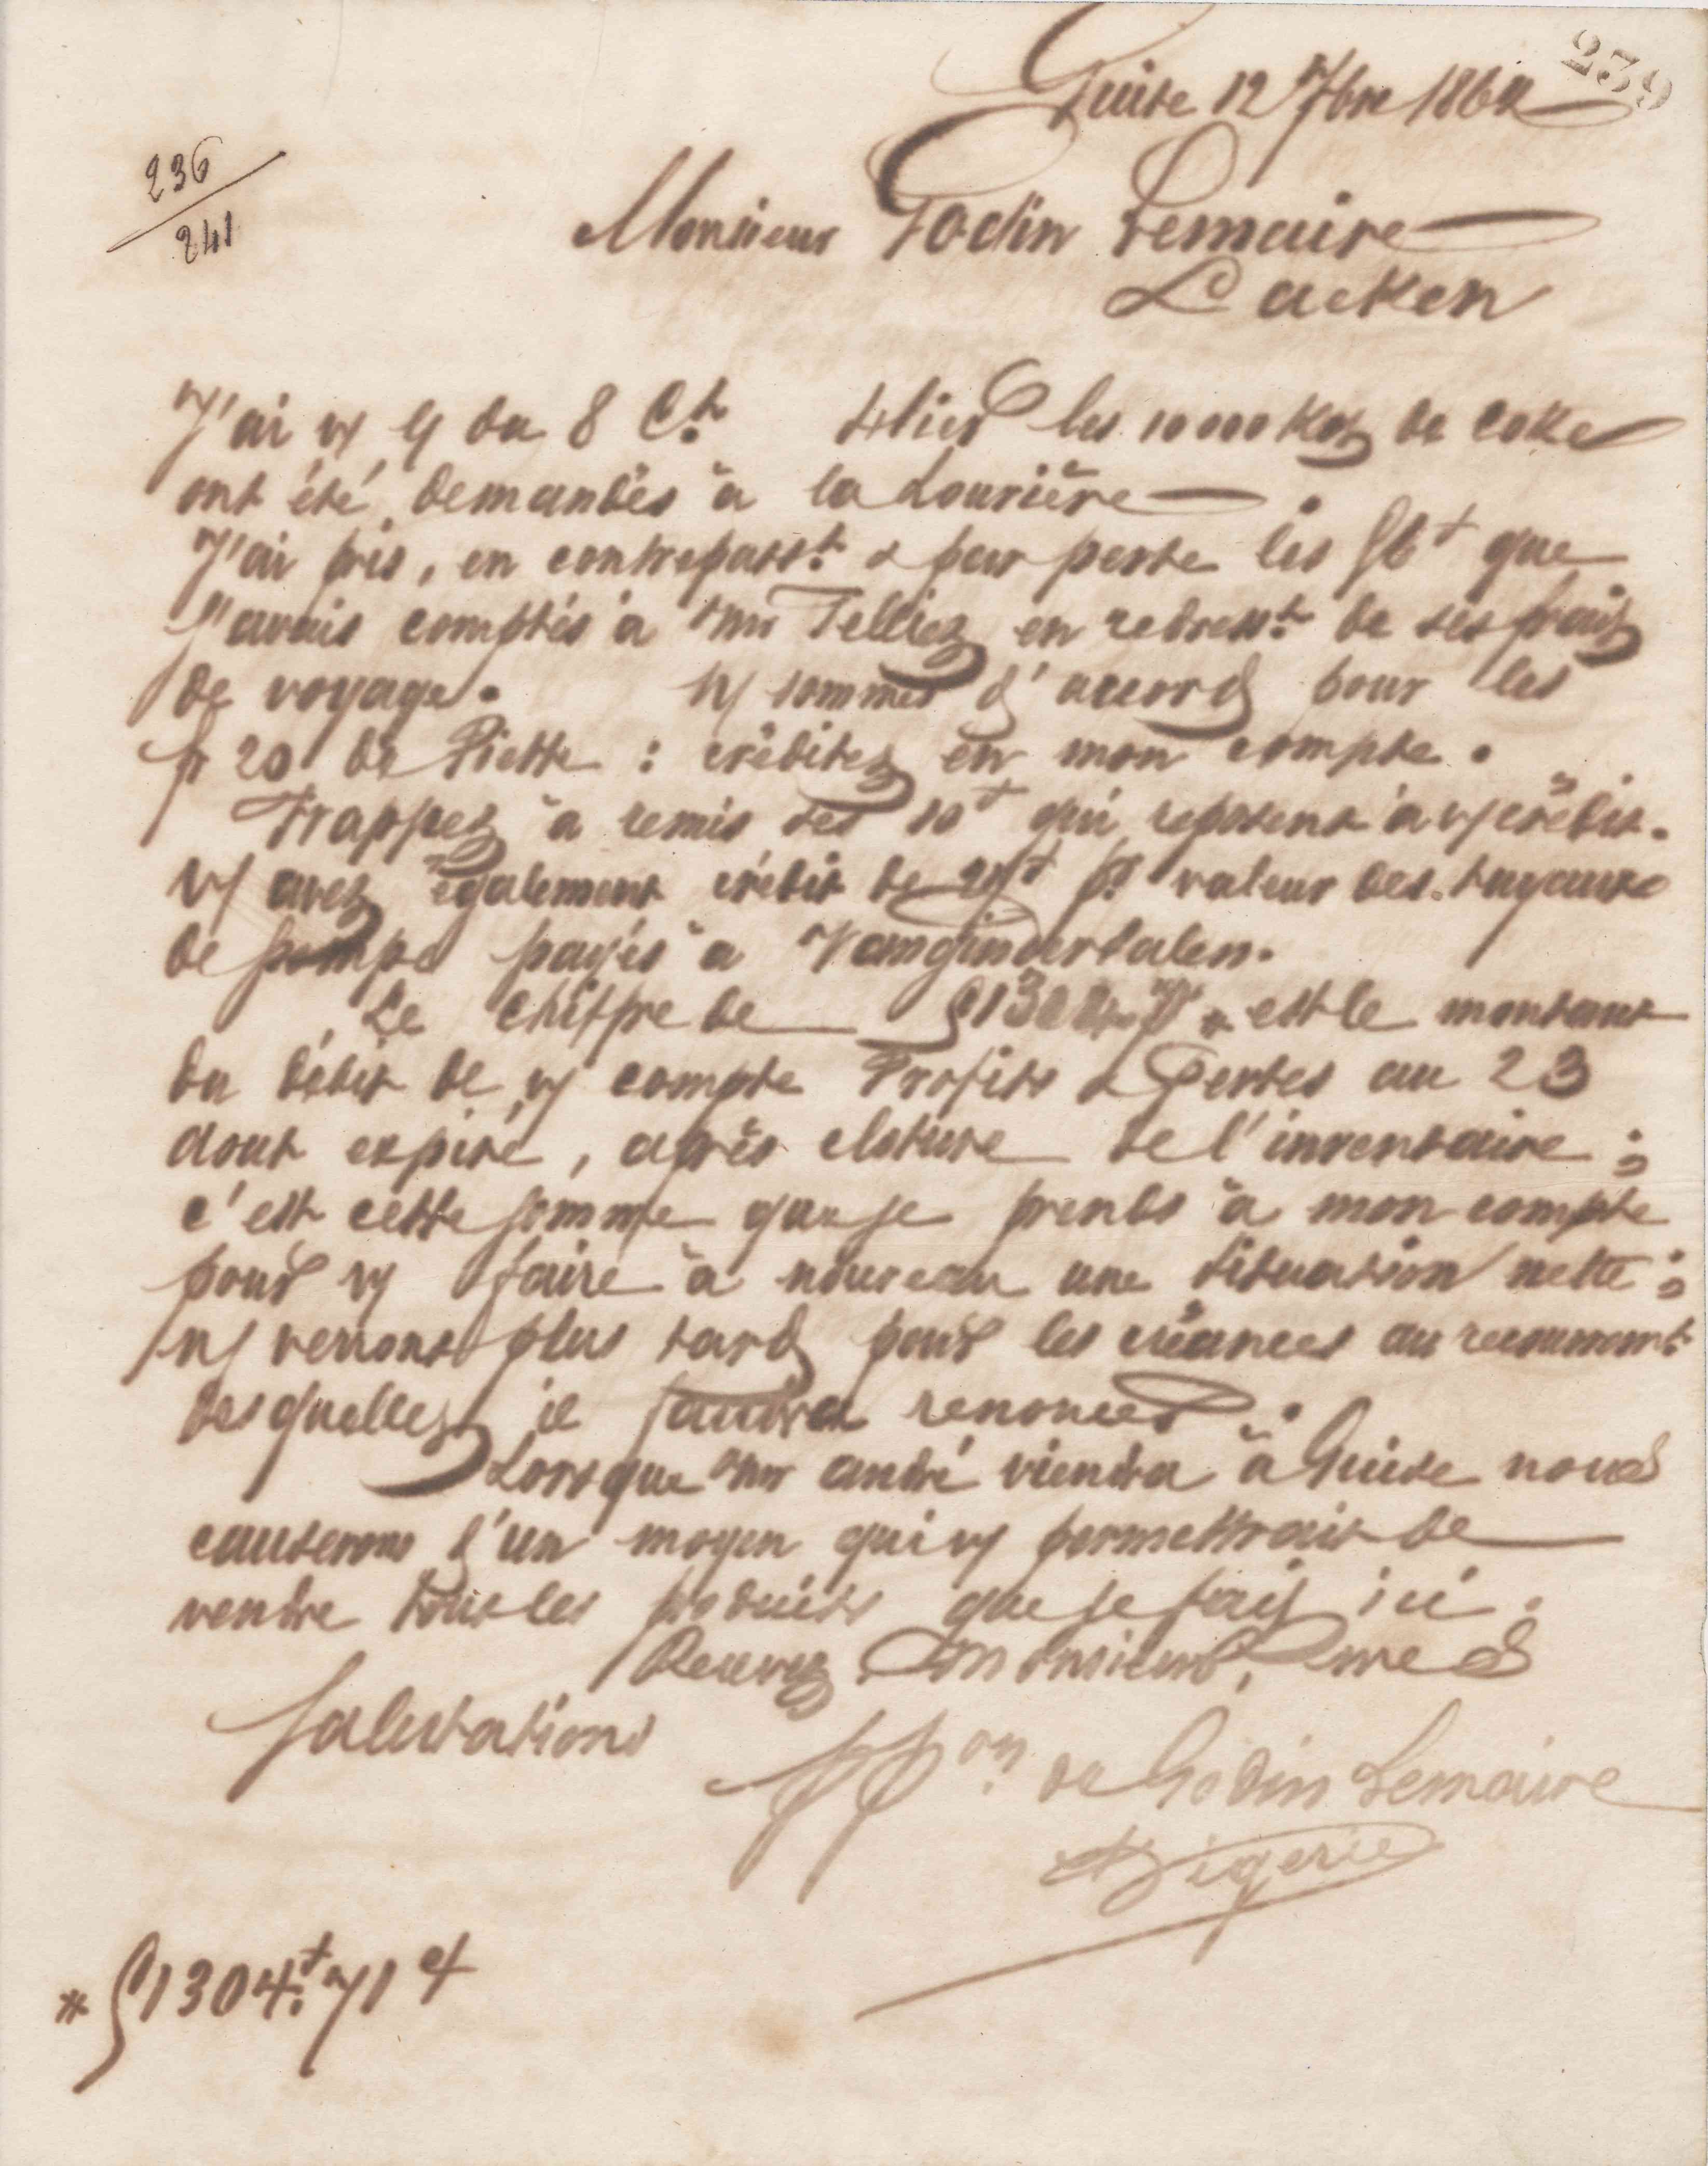 239
Guise 12 7bre 1864
236
241
Monsieur Godin Lemaire
Laeken
J'ai vy du 8 Ct. Hier les 10000 Kos de coke
ont été demandés à la Louvière
J'ai pris, en contrepasst. & par perte les que
j'avais comptés à Mr Telliez en redresst. de ses frais
de voyage. Ny sommes d'accord pour les
fr 20 de Piette : créditez en mon compte.
Frappez à remis ses 10f qui reposent à vy crédit.
Vy avez également crédit de pr valeur des tuyaux
de pompe payés à Vanginderdalen.
Le chiffre de * est le montant
du débit de vy compte Profits & Pertes au 23
aout expiré, après cloture de l'inventaire ;
c'est cette somme que je prends à mon compte
pour vy faire à nouveau une situation nette ;
ny verrons plus tard pour les créances au recouvremt
desquelles il faudra renoncer.
Lorsque Mr andré viendra à Guise nous
causerons d'un moyen qui vy permettrait de
vendre tous les produits que je fais ici.
Recevez Monsieur, mes
salutations
ppon de Godin Lemaire
* 51304f.71c